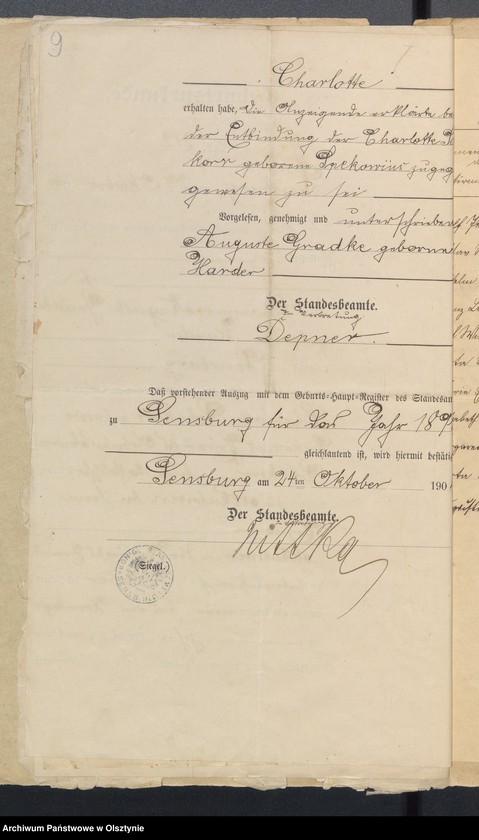 9
Charlotte
erhalten habe. Die Anzeigende erklärte be
der Entbindung der Charlotte
korr geborene zugeg
gewesen zu sei
Vorgelesen, genehmigt und unterschrieben
Auguste Gradke geborne
Harder
Der Standesbeamte.
In Vertretung
Depner.
Daß vorstehender Auszug mit dem Geburts-Haupt-Register des Standesam
zu Sensburg für das Jahr 18
gleichlautend ist, wird hiermit bestäti
Sensburg am 24ten Oktober 190
Der Standesbeamte.
(Siegel.)
Archiwum Państwowe w Olsztynie